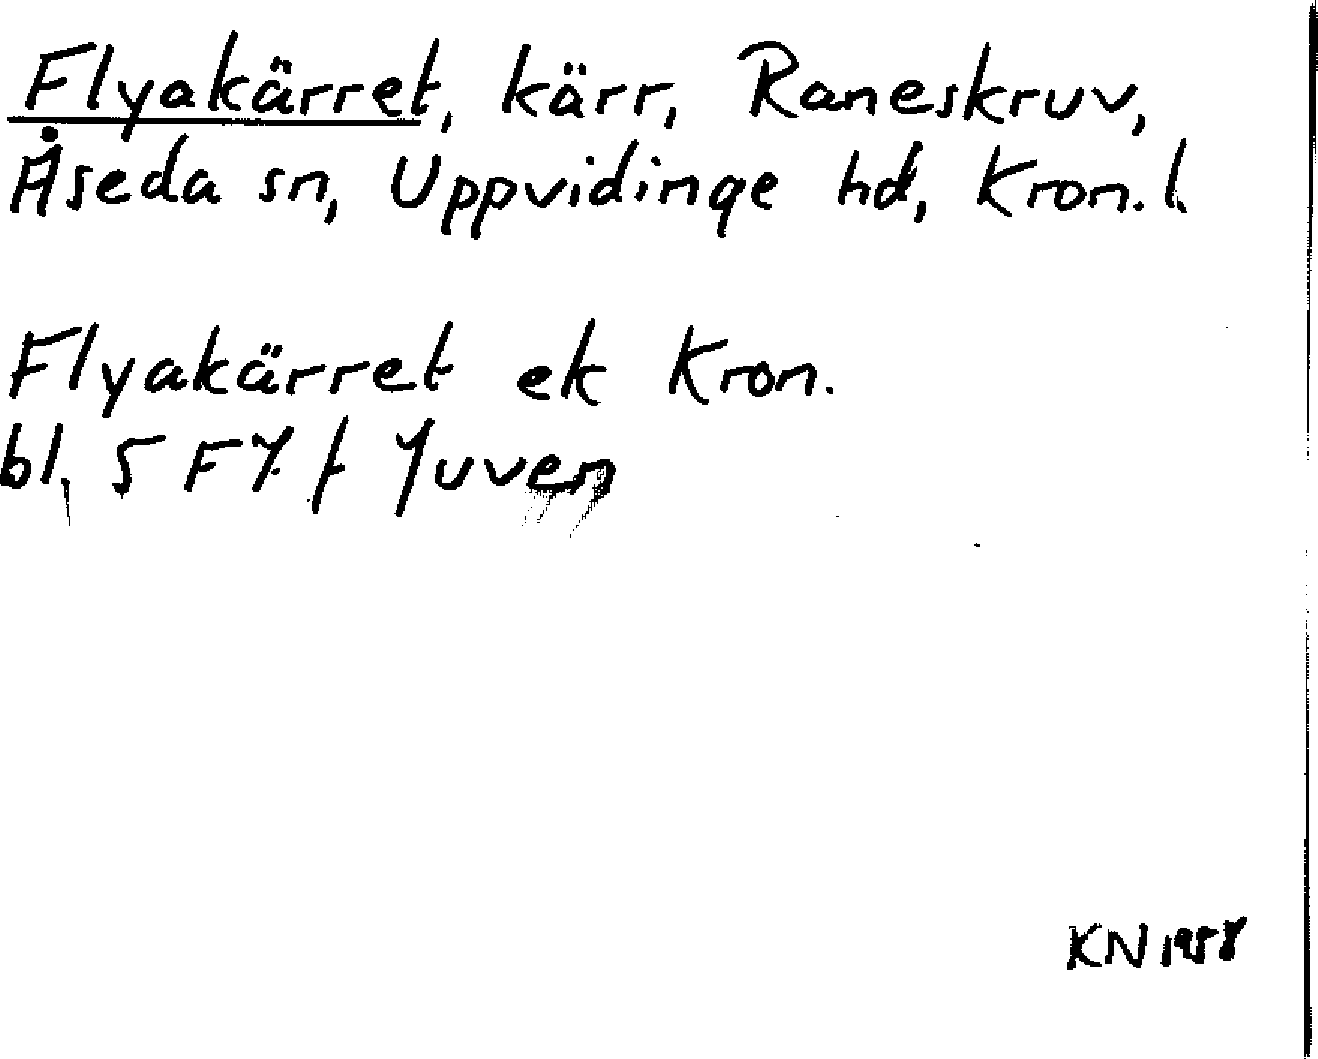 Flyakärret, kärr, Raneskruv,
Åseda sn, Uppvidinge hd, Kron. l.
Flyakärret ek Kron.
bl. 5 F
KN 1958